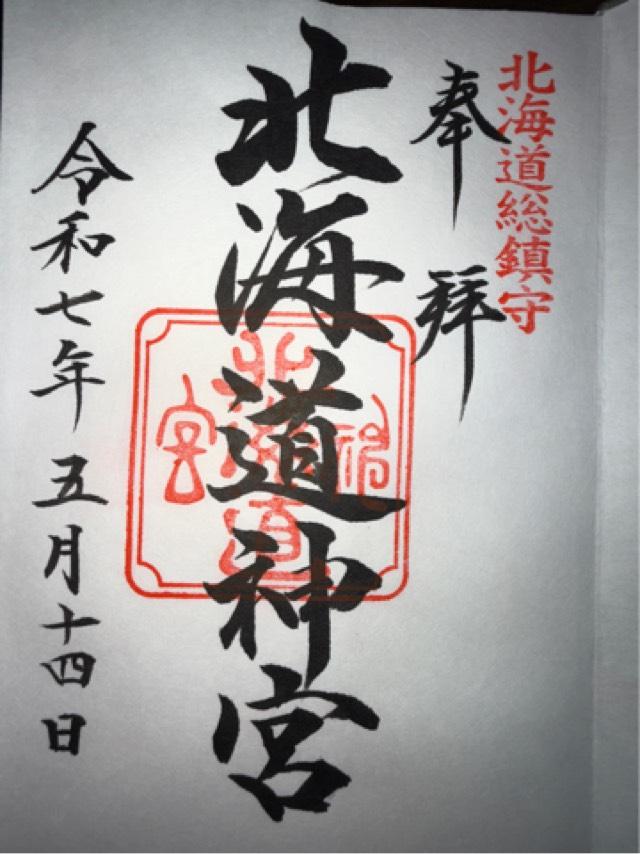 北海道総鎮守
奉拝
北海道神宮
北海道神宮
令和七年五月十四日